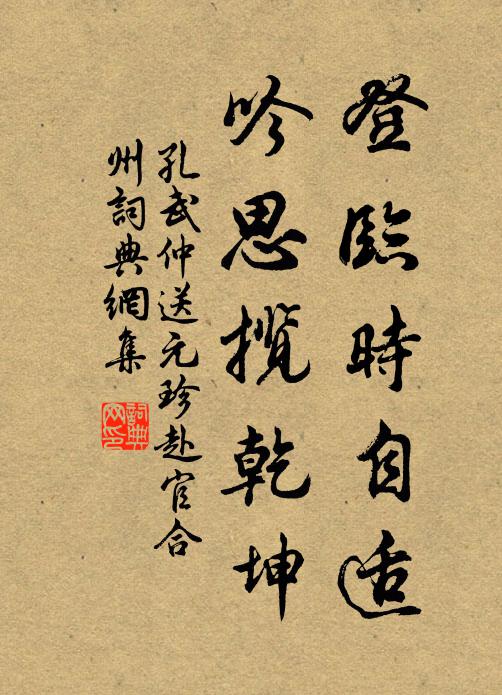 登臨時自适
吟思攬乾坤
孔武仲送元珍赴官合
州詞典網集
詞典网印